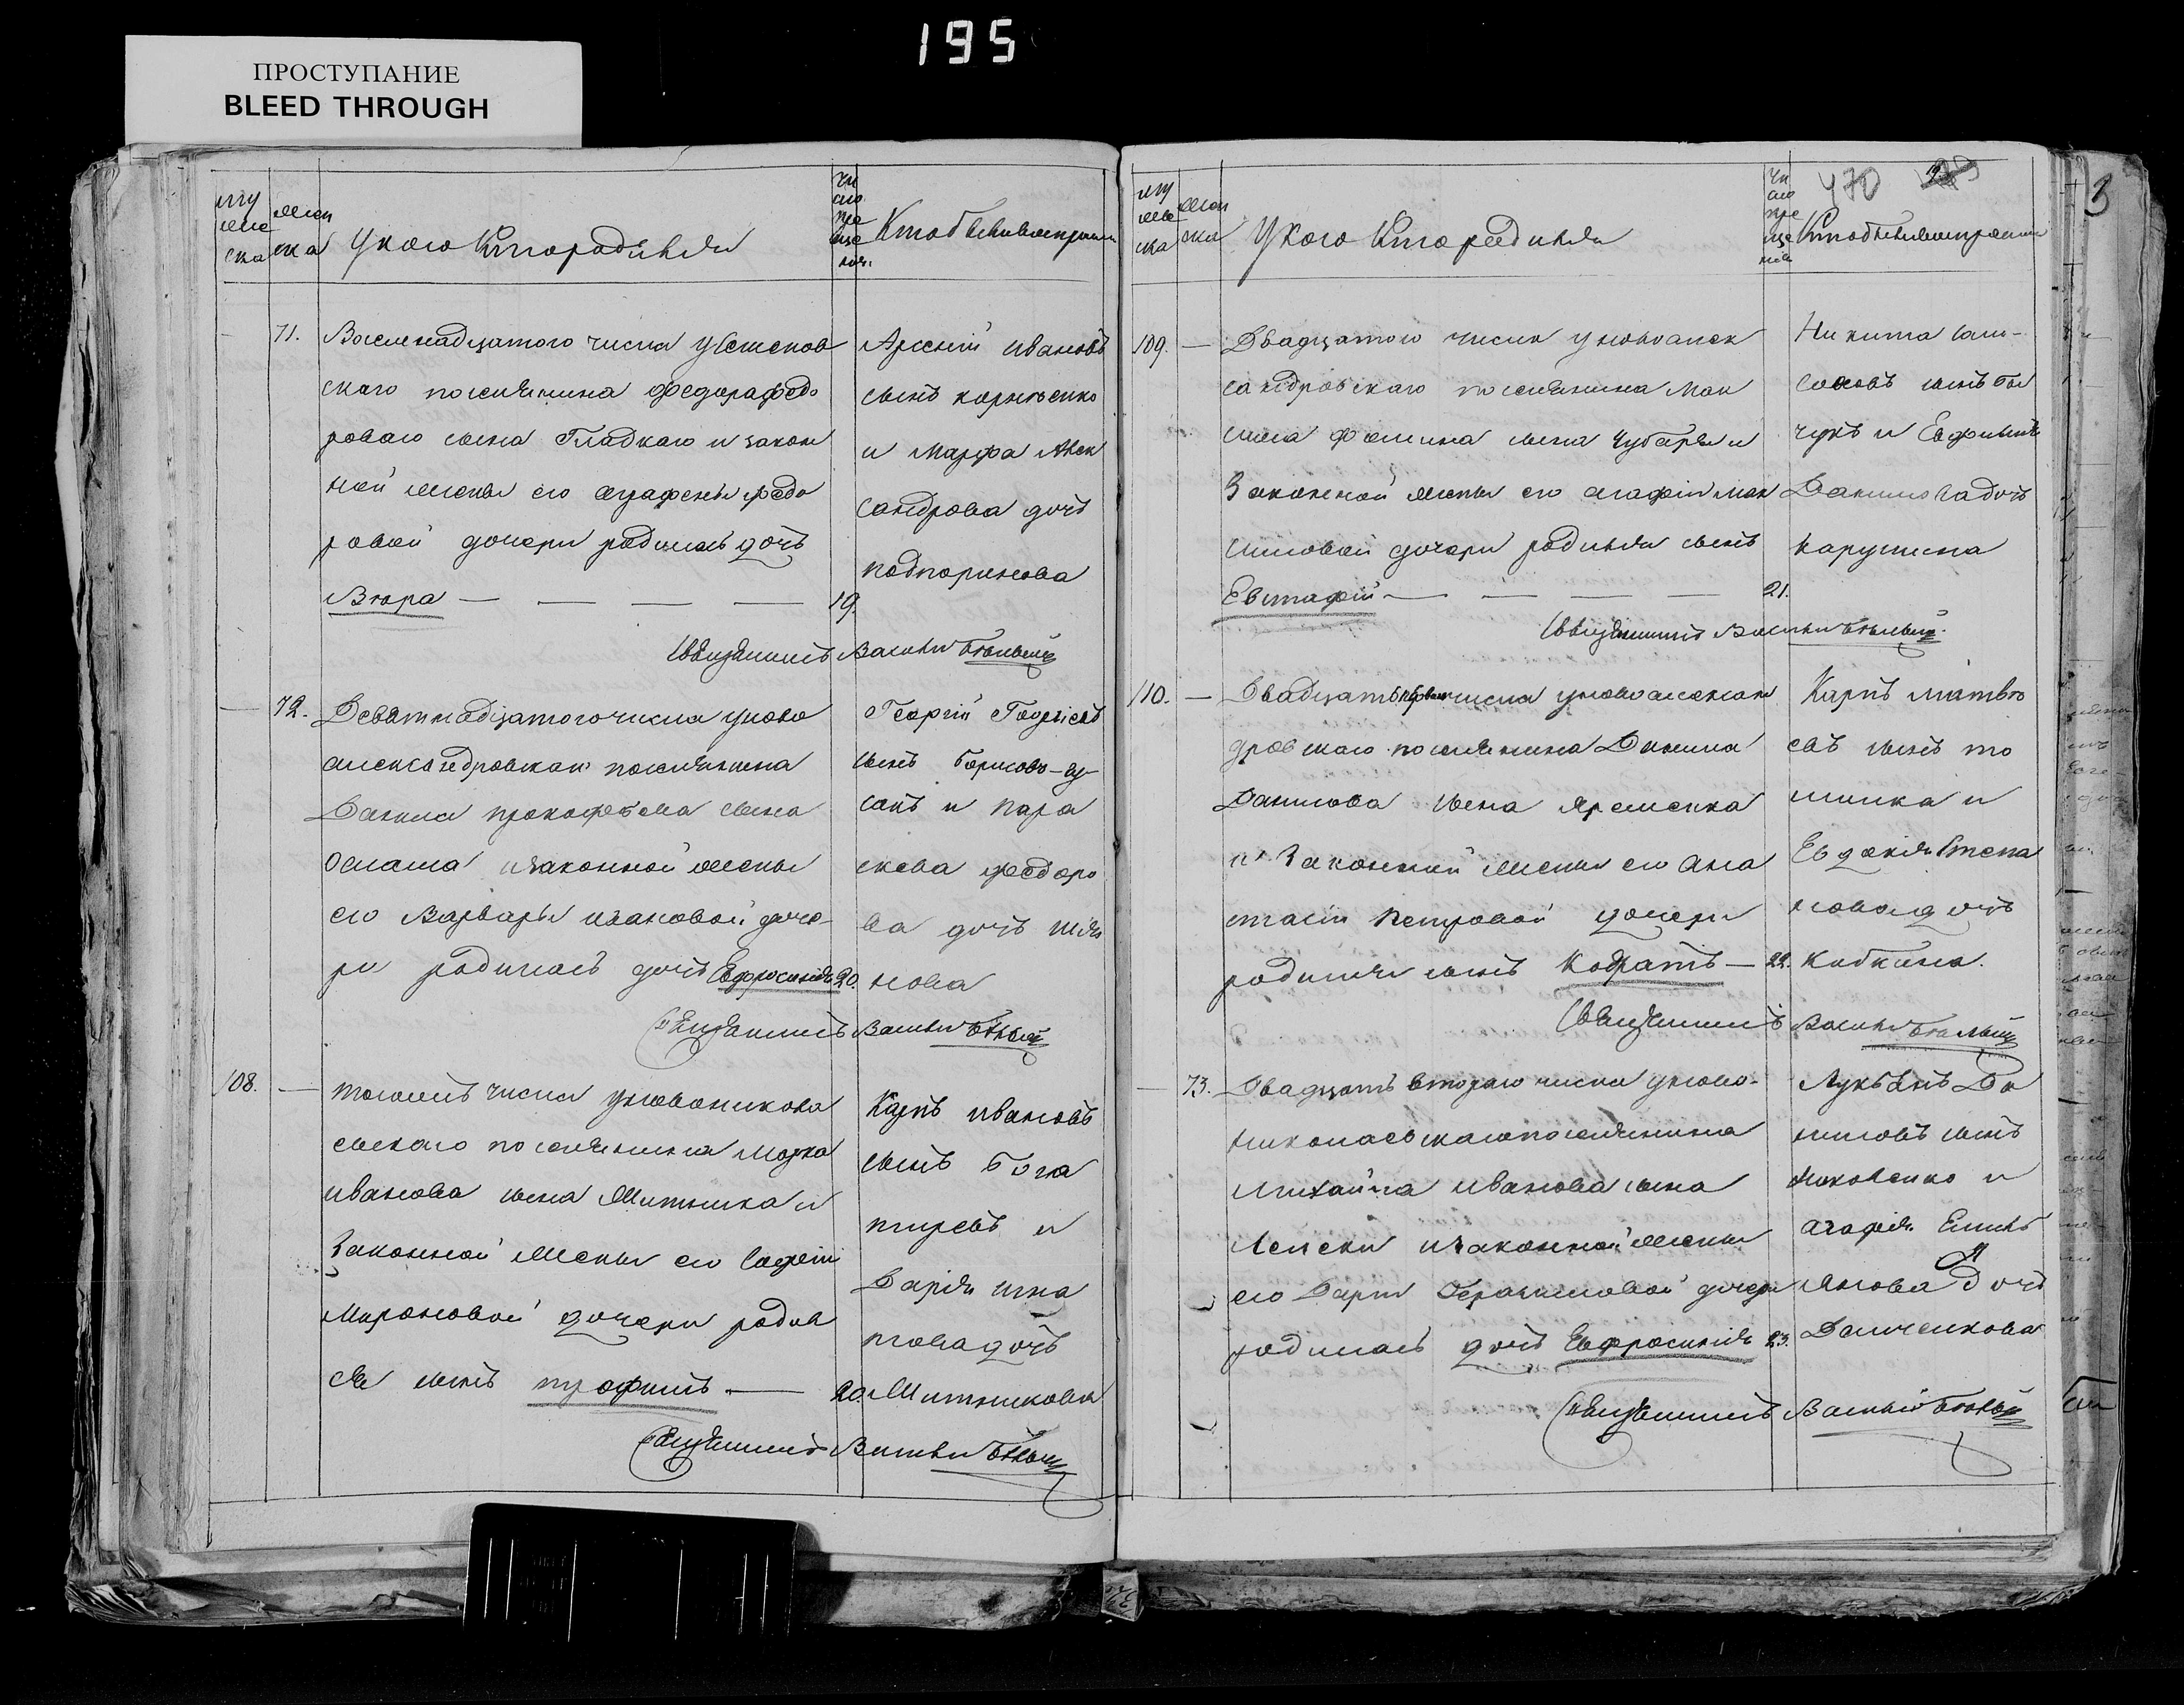 195
ПРОСТУПАНИЕ
BLEED THROUGH
му
жес
ка
жен
ска
У кого Кто родился
Чи
сло
кре
ще
нія
Кто были восприем
71.
Восемнадцатаго числа у
скаго поселянина Федора Федо
рова сына Гладкаго и закон
ной жены его Агафены Федо
ровой дочери родилась дочь
Вѣра
19.
Арсеній Ивановъ
сынъ корніенко
и Марфа Алек
сандрова дочь
Священникъ Василий Бѣлый
72.
Девятнадцатого числа у ново
александровскаго поселянина
Данила прокофьева сына
и законной жены
его Варвары ивановой доче-
ри родилась дочь Евфросинія 20.
Георгій
сынъ
и пара
скева федоро
ва дочь
нова
Священникъ Василий Бѣлый
108.
Тогожъ числа у новониколае
вскаго поселянина марка
иванова сына Митника и
Законной жены его Софіи
Мироновой дочери родил
ся сынъ трофимъ 20.
Карпъ ивановъ
сынъ Бога
тыревъ и
Дарія игна
това дочь
Митникова
Священникъ Василий Бѣлый
470
3
му
жес
ка
жен
ска
У кого Кто родился
Чи
сло
кре
ще
нія
Кто были восприем
109.
Двадцатого числа у новоалек
сандровскаго поселянина Мак
сима Фомина сына Чубаря и
Законной жены его агафіи мак
симовой дочери родился сынъ
Евстафій
21.
Никита
сынъ
чукъ и
Данилова дочь
карушина
Священникъ Василий Бѣлый
110.
Двадцать перваго числа у новоалексан
дровскаго поселянина Данила
Данилова сына Яременка
и Законной жены его Ана
стасіи петровой дочери
родился сынъ Кодратъ 22.
Карпъ матвѣ
евъ сынъ то
милка и
Евдокія Степа
нова дочь
Кобкина.
Священникъ Василий Бѣлый
73.
Двадцать втораго числа у ново-
николаевскаго поселянина
Михаила иванова сына
и законной жены
его Дарьи Герасимовой дочери
родилась дочь Евфросинія 23.
Лукьянъ Да
ниловъ сынъ
Яковенко и
агафія Емиль
янова дочь
Священникъ Василий Бѣлый